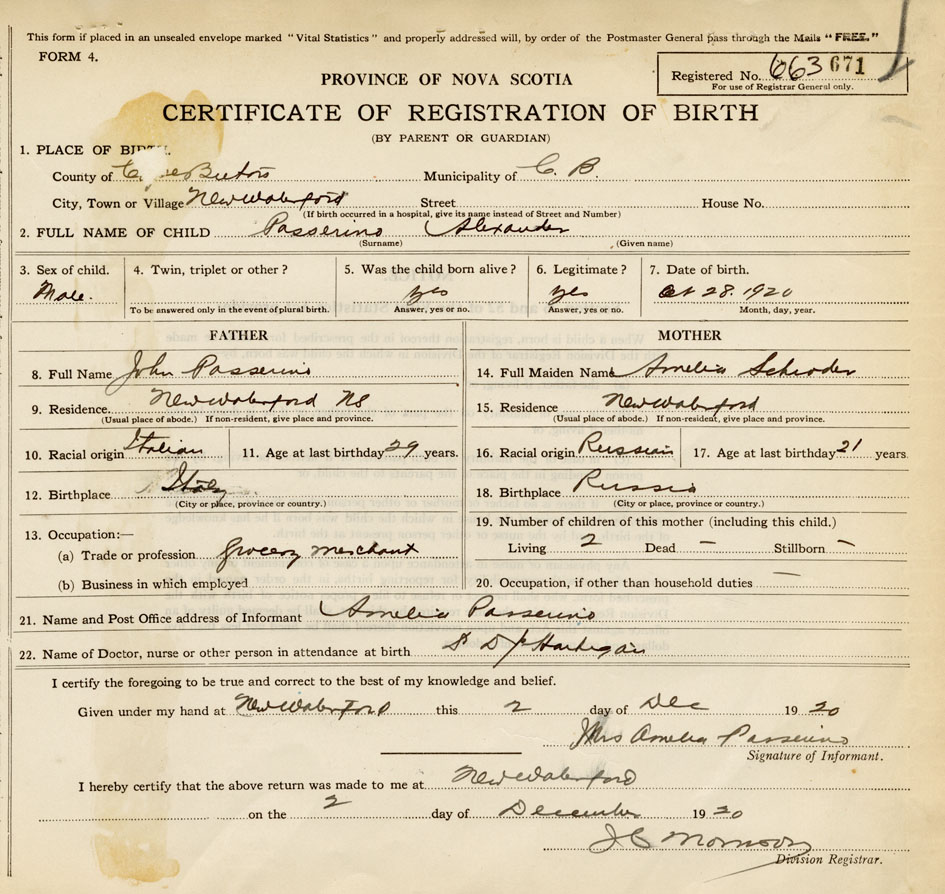 This form if placed in an unsealed envelope marked "Vital Statistics" and properly addressed will, by order of the Postmaster General pass through the Mails "FREE."
FORM 4.
PROVINCE OF NOVA SCOTIA
Registered No. 663 671
For use of Registrar General only.
CERTIFICATE OF REGISTRATION OF BIRTH
(BY PARENT OR GUARDIAN)
1. PLACE OF BIRTH.
County of Breton Municipality of C. B.
City, Town or Village New Waterford Street House No.
(If birth occurred in a hospital, give its name instead of Street and Number)
2. FULL NAME OF CHILD Passerino Alexander
(Surname) (Given name)
3. Sex of child. 4. Twin, triplet or other? 5. Was the child born alive? 6. Legitimate? 7. Date of birth.
Male. yes yes Oct 28. 1920
To be answered only in the event of plural birth. Answer, yes or no. Answer, yes or no. Month, day, year.
FATHER MOTHER
8. Full Name John Passerino 14. Full Maiden Name Amelia Schroder
9. Residence New Waterford NS 15. Residence New Waterford
(Usual place of abode.) If non-resident, give place and province. (Usual place of abode.) If non-resident, give place and province.
10. Racial origin Italian 11. Age at last birthday 29 years. 16. Racial origin Russian 17. Age at last birthday 21 years
12. Birthplace Italy 18. Birthplace Russia
(City or place, province or country.) (City or place, province or country.)
13. Occupation:— 19. Number of children of this mother (including this child.)
(a) Trade or profession Grocery merchant Living 2 Dead – Stillborn –
(b) Business in which employed 20. Occupation, if other than household duties —
21. Name and Post Office address of Informant Amelia Passerino
22. Name of Doctor, nurse or other person in attendance at birth Hartigan
I certify the foregoing to be true and correct to the best of my knowledge and belief.
Given under my hand at New Waterford this 2 day of Dec 1920
Mrs Amelia Passerino
Signature of Informant.
I hereby certify that the above return was made to me at New Waterford
on the 2 day of December 1920
J C Morrison
Division Registrar.